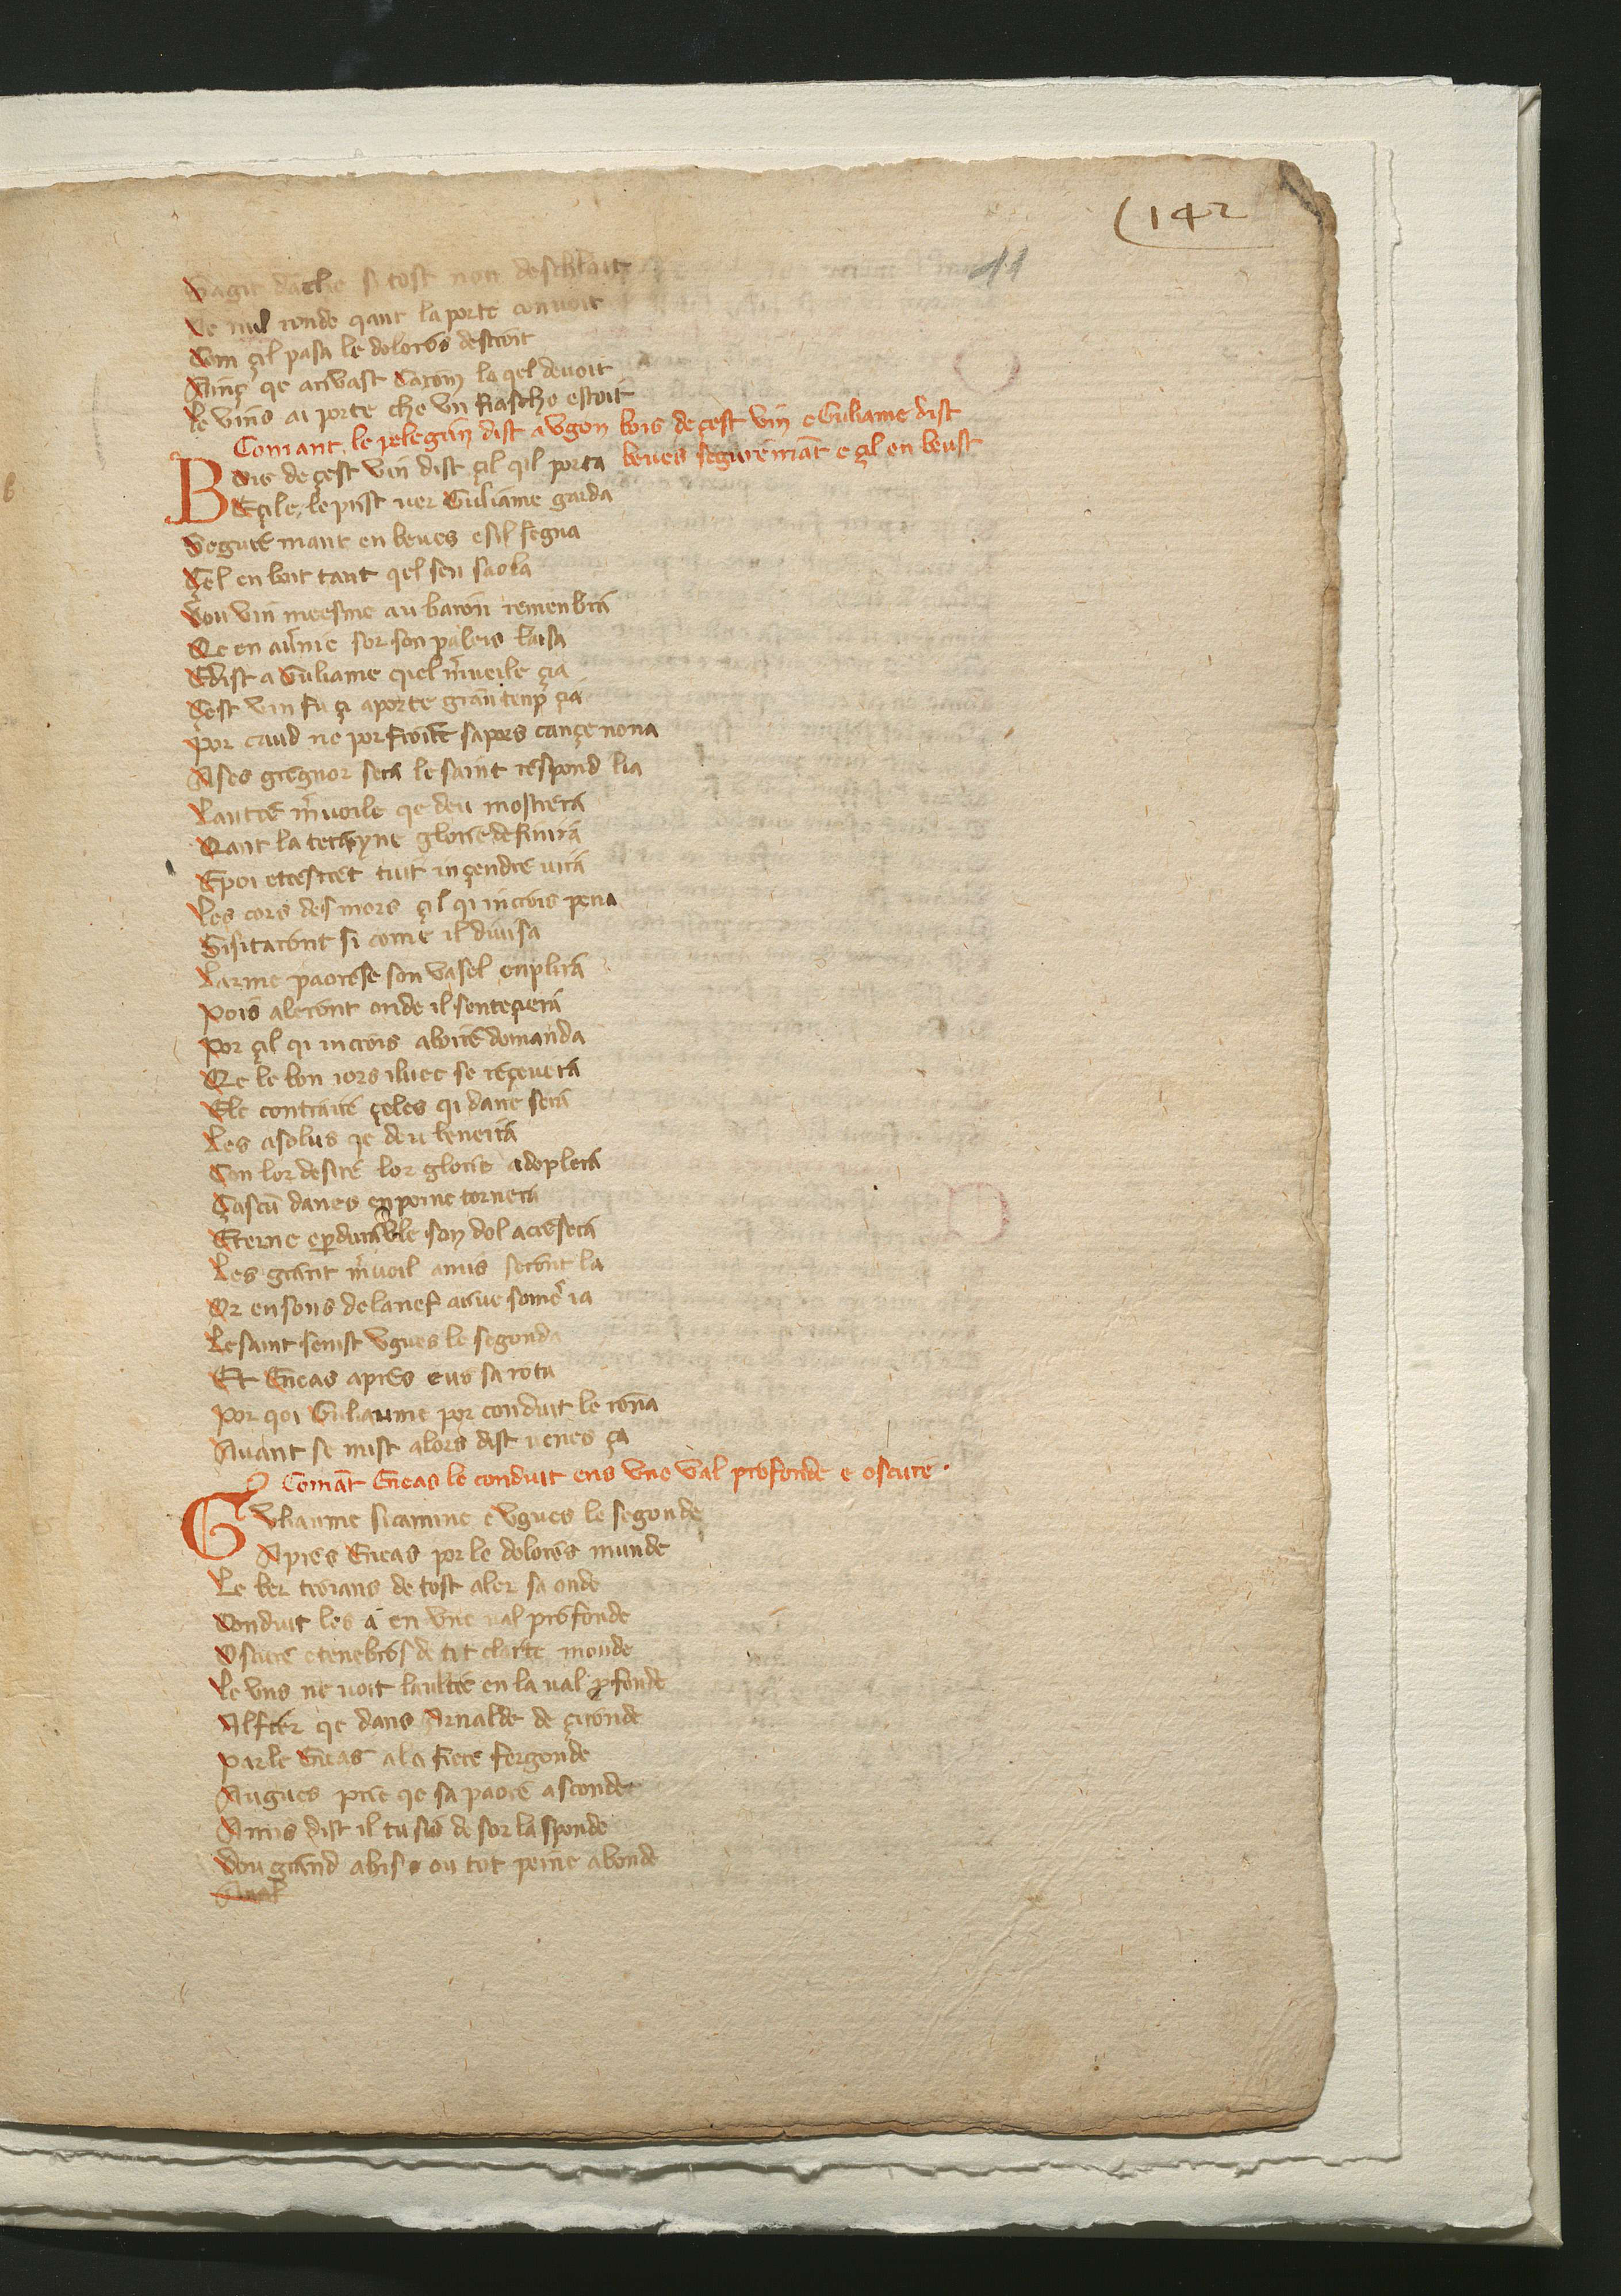 (142
11
Sagit darche si tost non deschlait
De nul ronde qant la porte convoit
Com çil pasa le doloros destroit
Ainç qe arivast Caron la qel devoit
Le vins ai porte che vn fiascho estoit
Comant le pelegrin dist a vgon bois de çest vin e Guliame dist
beues seguremant e çil en beust
Bois de çest vin dist çil qil porta
E çil le prist uer Guliame garda
Seguremant en beues e sil segna
Çel en boit tant qel sen saola
Dou vin meesme au baron remenbra
Qe en auernie sor son paleis laisa
E dist a Guliame quel merueile ça
Çest vin fu çi aporte gran tenp ça
Por caud ne por froite sapors cançe non a
Ases gregnor sera le saint respond lia
Lautre meruoile qe deu mostrera
Qant la terayne glorie definira
E poi et cest tuit in çendre uira
Les cors des mors çil qi in crois pena
Sisitaront si come il diuisa
Larme paorese son vasel enplira
Pois aleront onde il senteçiera
Por çil qi in crois aboire domanda
Qe le bon iors iluec se reçeuera
E le contraire çeles qi dane sera
Les asolus qe deu beneira
Con lor desire lor glorie adoplera
Çascun danes en poine tornera
Eterne e perdurable son dol acresera
Les grant meruoil amis seront la
Or ensons de la nef arive some ia
Le saint sen ist vgues le segonda
Et Eneas apres eus sa rota
Por qoi Guliaume por conduit le rona
Avant se mist alors dist venes ça
Comant Eneas le conduit ens vne val profonde e oscure
Guliaume si camine e vgues le segonde
Apres Eneas por le doloros munde
Le ber troians de tost aler sa onde
Conduit les a en vne ual profonde
Oscure e tenebros de tot clarte monde
Le vns ne uoit laultre en la ual profonde
Al frer qe dans Arnalde de çironde
Parle Eneas a la fiere fergonde
A vgues prie qe sa paore asconde
Amis dist il tu sis desor la sponde
Dou grand abis e ou tot peine abonde
Aual